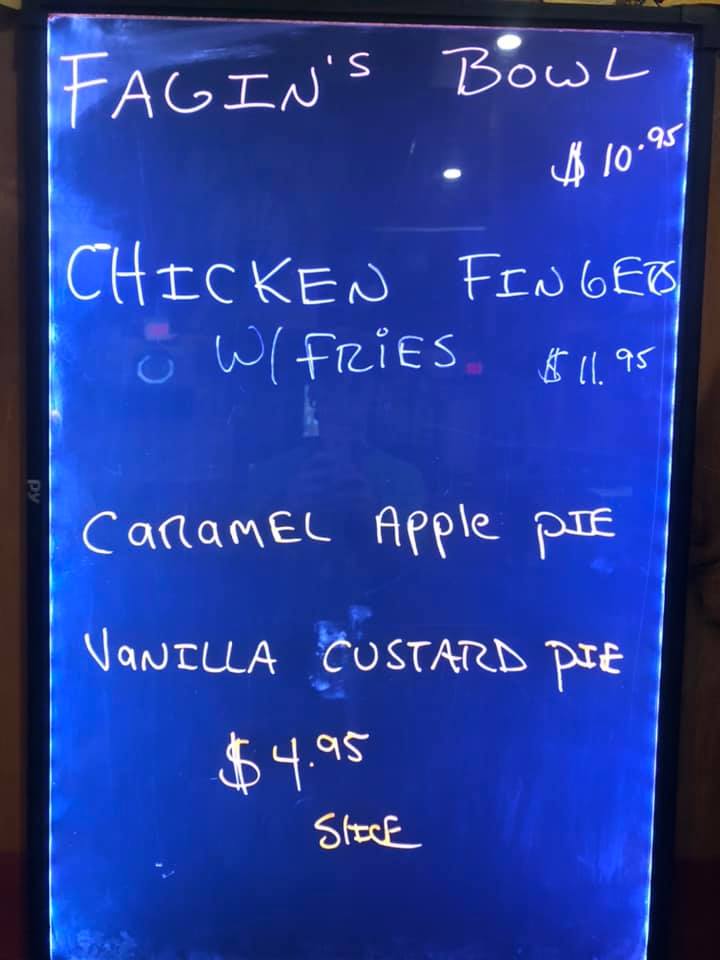 FAGIN'S BOWL
$10.95
CHICKEN FINGERS
W/FRIES $11.95
CARAMEL APPle PIE
VANILLA CUSTARD PIE
$4.95
SLICE